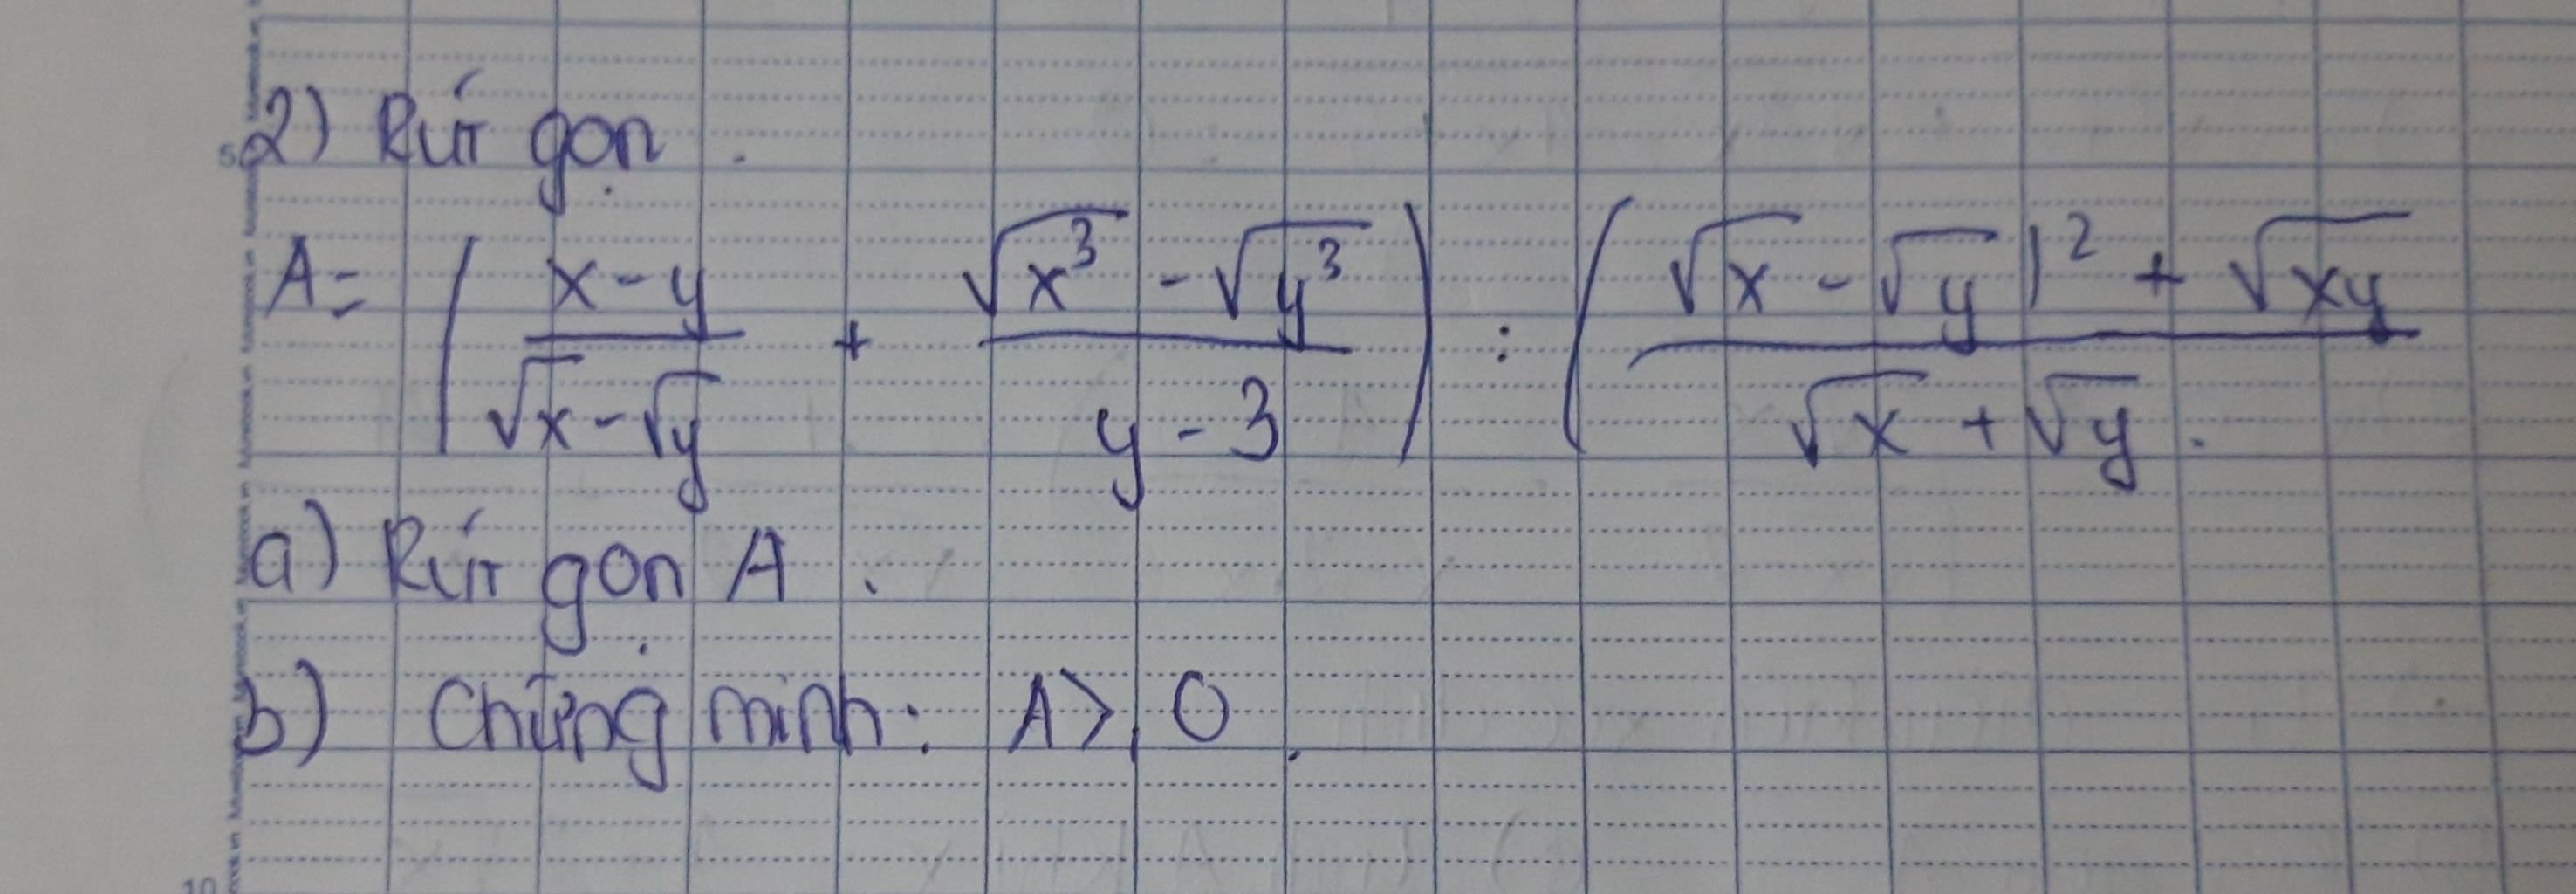 2) Rút gọn.
A = ( (x - y)/(√x - √y) + (√x³ - √y³)/(y - 3) ) : (√x - √y)² + √xy / (√x + √y).
a) Rút gọn A.
b) Chứng minh: A ⩾ 0.